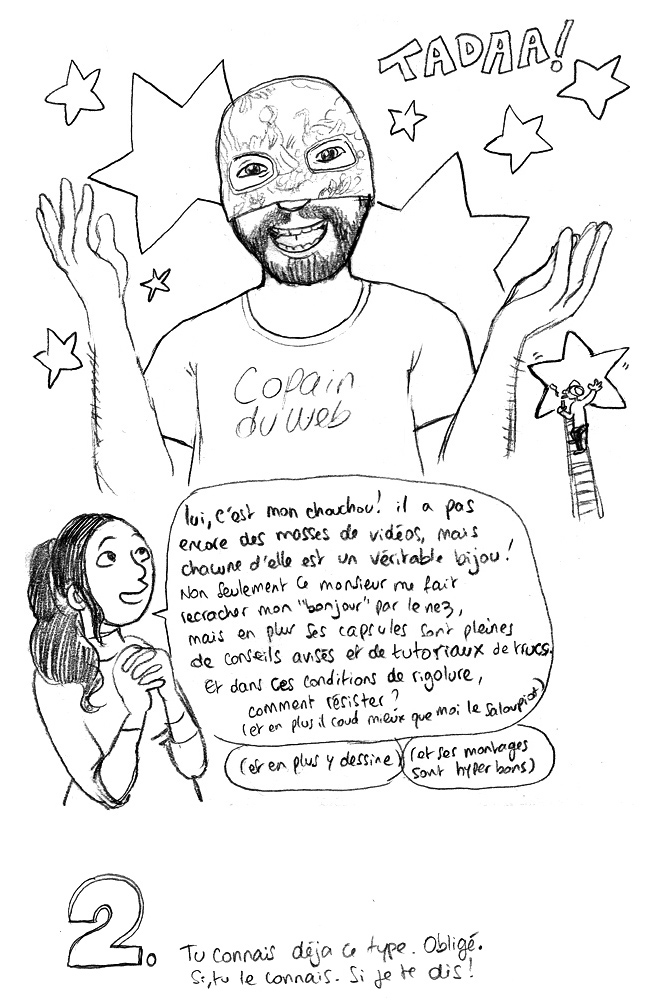 TADAA!
Copain
du web
lui, c'est mon chouchou! il a pas
encore des masses de vidéos, mais
chacune d'elle est un véritable bijou!
Non seulement ce monsieur me fait
recracher mon "bonjour" par le nez,
mais en plus ses capsules sont pleines
de conseils avisés et de tutoriaux de trucs.
Et dans ces conditions de rigolure,
comment résister?
(et en plus il coud mieux que moi le saloupiot)
(et en plus y dessine)
(et ses montages
sont hyper bons)
2.
Tu connais déja ce type. Obligé.
Si, tu le connais. Si je te dis!